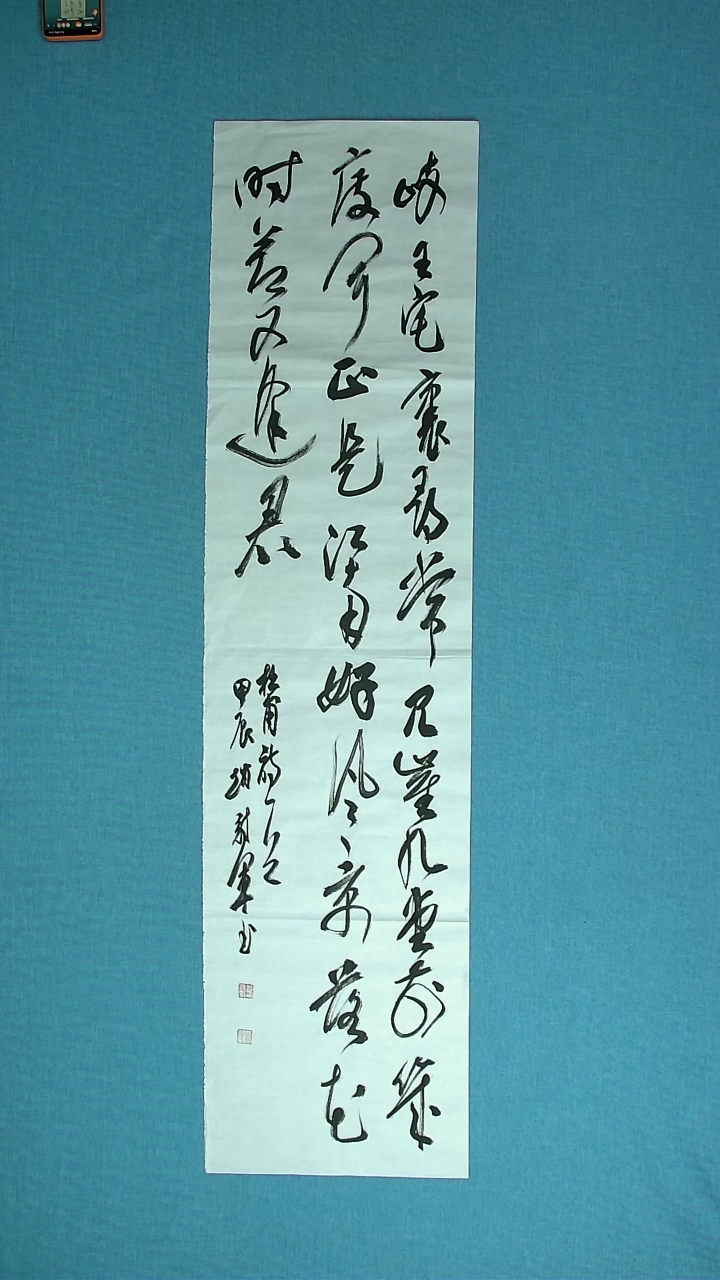 岐王宅裏尋常見崔九堂前幾
度聞正是江南好風景落花
時節又逢君
杜甫詩一首
甲辰趙軍书